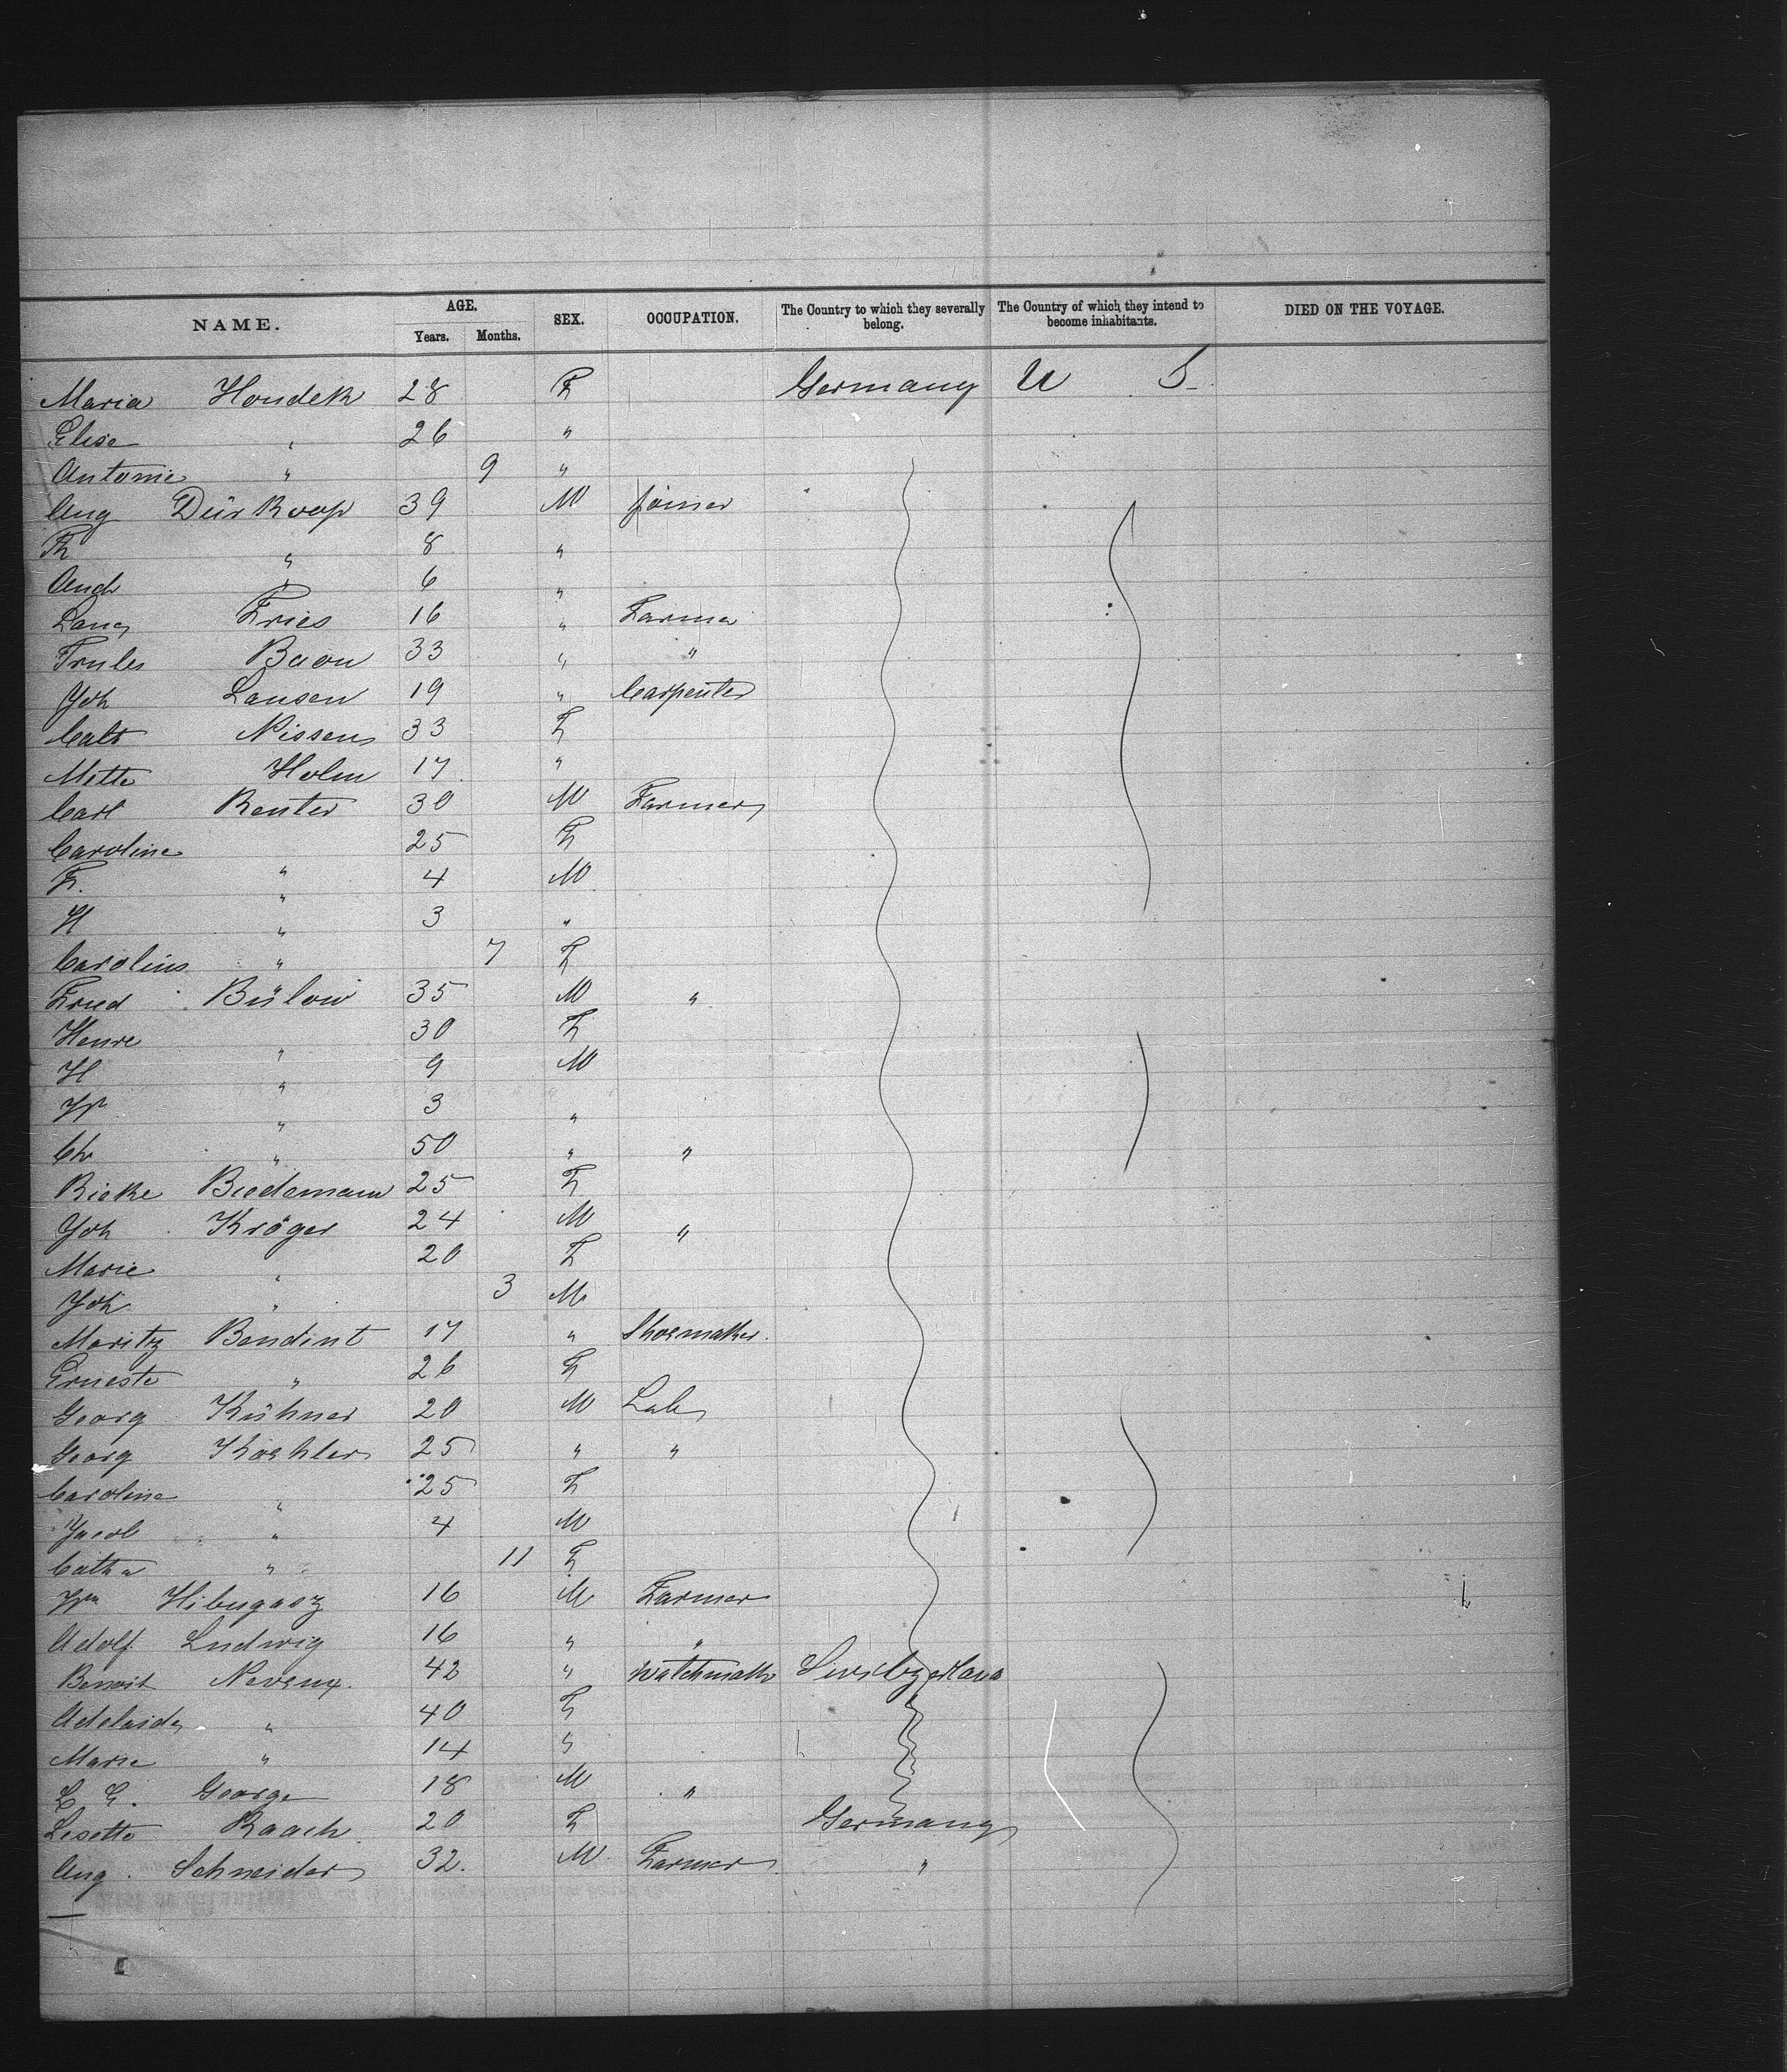 NAME. AGE. Years. Months. SEX. OCCUPATION. The Country to which they severally belong. The Country of which they intend to become inhabitants. DIED ON THE VOYAGE.
Maria Houdek 28 F Germany U S
Elise " 26 "
Antonie " 9 "
Aug Dürkoop 39 M joiner
Fr " 8 "
And " 6 "
Fries 16 " Farmer
Truls 33 " "
Joh Lausen 19 " Carpenter
Nissen 33 F
Mette Holm 17 "
Carl Reuter 30 M Farmer
Caroline " 25 F
F. " 4 M
H " 3 "
Caroline " 7 F
Fried Bülow 35 M "
Henre " 30 F
H " 9 M
" 3 "
Ch " 50 " "
Rieke Biedemann 25 F
Joh Kröger 24 M "
Marie " 20 F
Joh " 3 M
Moritz Bendint 17 " Shoemaker
Erneste " 26 F
Georg Kühner 20 M Lab
Georg Koehler 25 " "
Caroline " 25 F
Jacob " 4 M
Catha " 11 F
Wm 16 M Farmer
Adolf Ludwig 16 " "
Benoit Neveux 42 " Watchmak Switzerland
Adelaide " 40 F
Marie " 14 "
L G. George 18 M "
Lisette Raach 20 F Germany
Aug. Schneider 32. M Farmer "